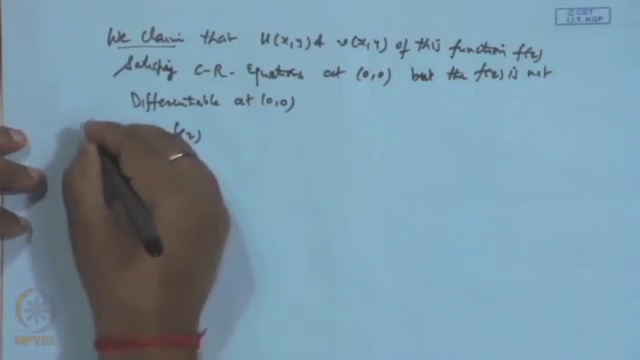 © CET
I.I.T. KGP
We claim that u(x,y) & v(x,y) of this function f(z)
Satisfying C-R- Equations at (0,0) but the f(z) is not
Differentiable at (0,0)
f(z)
NPTEL